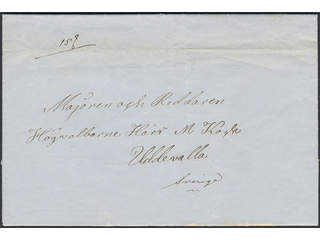 Majoren och Riddaren
Högvälborne Herr M Koch
Uddevalla
Sverige